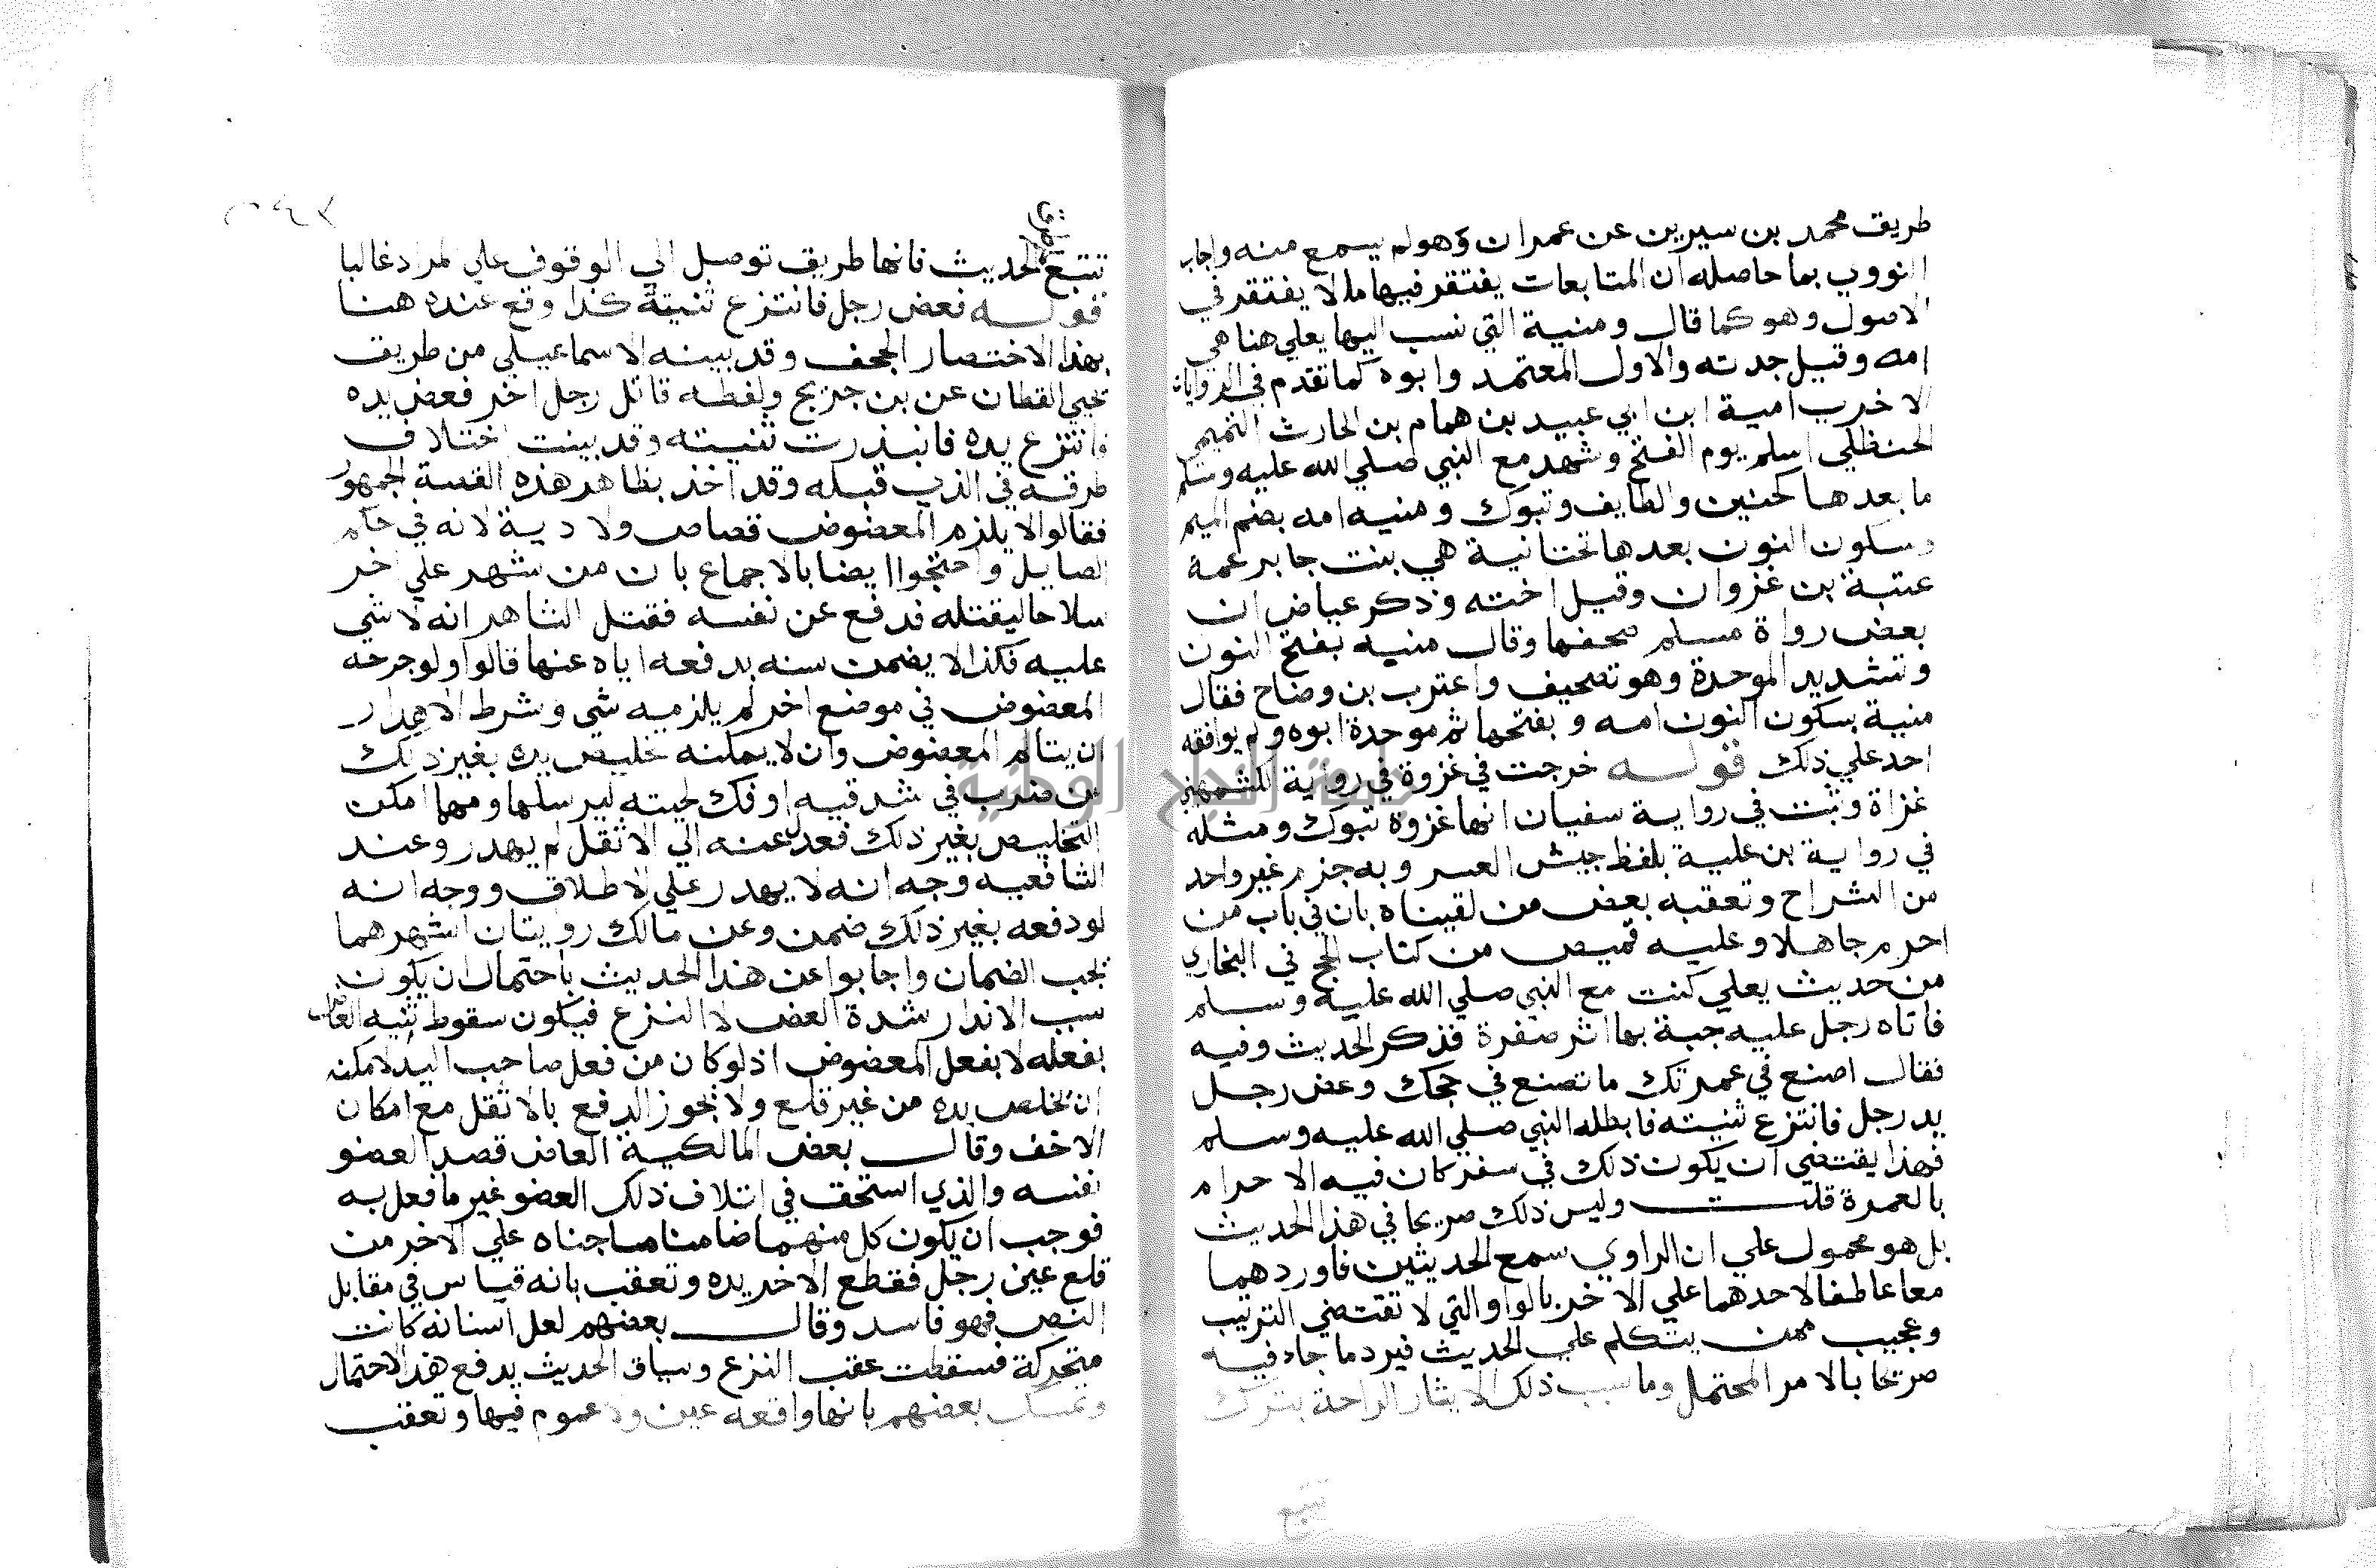 طريق محمد بن سيرين عن عمران وهو لم يسمع منه واجاب
النووي بما حاصله ان المتابعات يفتقر فيها ما لا يفتقر في
الاصول وهو كما قال ومنية التي نسب اليها يعلي هنا هي
امه وقيل جدته والاول المعتمد وابوه كما تقدم في الروايات
الاخرى امية ابن ابي عبيد بن همام بن الحارث التميمي
الحنظلي اسلم يوم الفتح وشهد مع النبي صلي الله عليه وسلم
ما بعدها كحنين والطايف وتبوك ومنيه امه بضم الميم
وسكون النون بعدها تحتانية هي بنت جابر عمة
عتبة بن غزوان وقيل اخته وذكر عياض ان
بعض رواة مسلم صحفها وقال منبه بفتح النون
وتشديد الموحدة وهو تصحيف واعترب بن وضاح فقال
منية بسكون النون امه و بفتحها ثم موحدة ابوه ولم يوافقه
احد علي ذلك قوله خرجت في غزوة في رواية الكشميهني
غزاة وثبت في رواية سفيان انها غزوة تبوك ومثله
في رواية بن علية بلفظ جيش العسر وبه جزم غير واحد
من الشراح وتعقبه بعض من لقيناه بان في باب من
احرم جاهلا وعليه قميص من كتاب الحج في البخاري
من حديث يعلي كنت مع النبي صلي الله عليه وسلم
فاتاه رجل عليه جبة بها اثر صفرة فذكر الحديث وفيه
فقال اصنع في عمرتك ما تصنع في حجك وعض رجل
يد رجل فانتزع ثنيته فابطله النبي صلي الله عليه وسلم
فهذا يقتضي ان يكون ذلك في سفر كان فيه الاحرام
بالعمرة قلت وليس ذلك صريحا في هذا الحديث
بل هو محمول علي ان الراوي سمع الحديثين فاوردهما
معا عاطفا لاحدهما علي الاخر بالواو التي لا تقتضي الترتيب
وعجيب ممن يتكلم علي الحديث فيرد ما جاء فيه
صريحا بالامر المحتمل وما سبب ذلك الا ايثار الراحة بترك
تتبع
طرق
تتبع الحديث فانها طريق توصل الي الوقوف علي المراد غالبا
قوله فعض رجل فانتزع ثنيته كذا وقع عنده هنا
بهذا الاختصار المجحف وقد بينه الاسماعيلي من طريق
يحيي القطان عن بن جريج ولفظه قاتل رجل اخر فعض يده
فانتزع يده فانبذرت ثنيته وقد بينت اختلاف
طرقه في الذي قبله وقد اخذ بظاهر هذه القصة الجمهور
فقالوا لا يلزم المعضوض قصاص ولا دية لانه في حكم
الصايل واحتجوا ايضا بالاجماع بان من شهر علي اخر
سلاحا ليقتله فدفع عن نفسه فقتل الشاهر انه لا شي
عليه فكذا لا يضمن سنه بدفعه اياه عنها قالوا ولو جرحه
المعضوض في موضع اخر لم يلزمه شي وشرط الاهدار
ان يتالم المعضوض وان لا يمكنه تخليص يده بغير ذلك
من ضرب في شدقيه او فك لحيته ليرسلها ومهما امكن
التخليص بغير ذلك فعدل عنه الي الاثقل لم يهدر وعند
الشافعيه وجه انه لا يهدر علي الاطلاق ووجه انه
لو دفعه بغير ذلك ضمن وعن مالك روايتان اشهرهما
يجب الضمان واجابوا عن هذا الحديث باحتمال ان يكون
سبب الانذار شدة العض لا النزع فيكون سقوط ثنيه العاض
بفعله لا بفعل المعضوض اذ لو كان من فعل صاحب اليد لامكنه
ان يخلص يده من غير قلع ولا يجوز الدفع بالاثقل مع امكان
الاخف وقال بعض المالكية العاض قصد العضو
نفسه والذي استحق في اتلاف ذلك العضو غير ما فعل به
فوجب ان يكون كل منهما ضامنا ما جناه علي الاخر من
قلع عين رجل فقطع الاخر يده وتعقب بانه قياس في مقابل
النص فهو فاسد وقال بعضهم لعل اسنانه كانت
متحركة فسقطت عقب النزع وسياق الحديث يدفع هذا الاحتمال
وتمسك بعضهم بانها واقعة عين ولا عموم فيها وتعقب
جامعة النجاح الوطنية